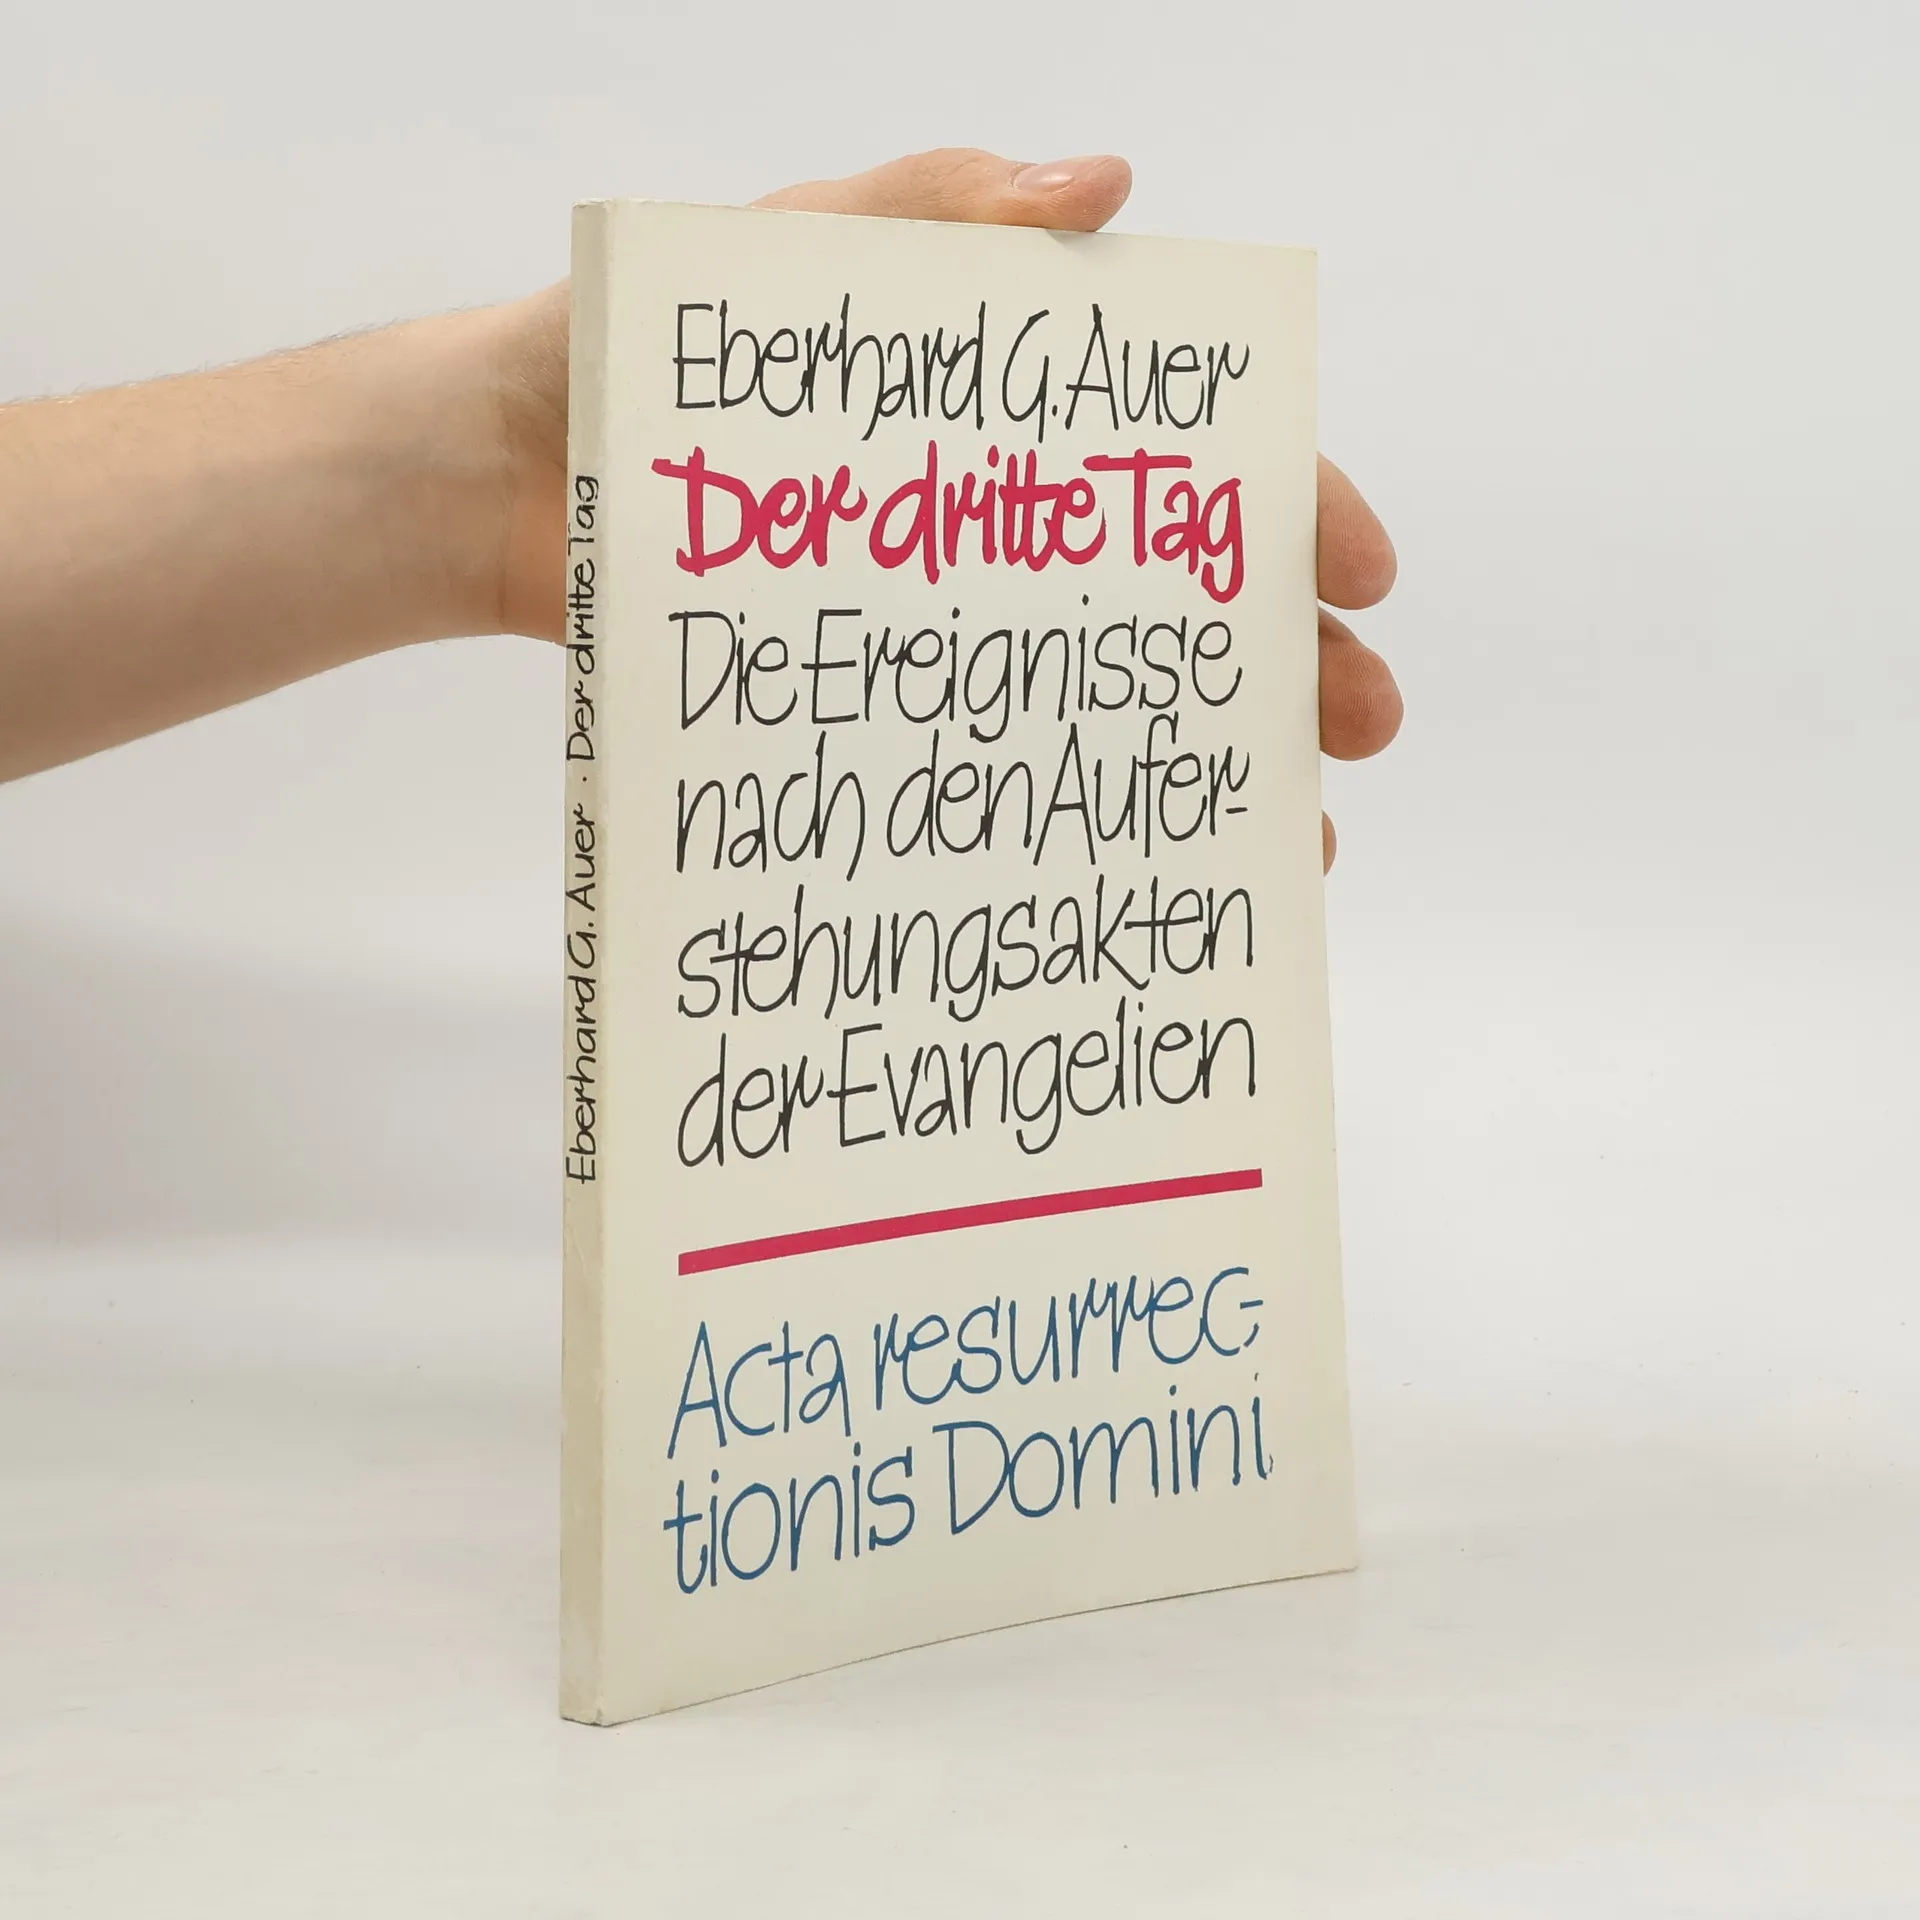 Eberhard G. Auer
Der dritte Tag
Die Ereignisse
nach den Aufer-
stehungsakten
der Evangelien
Acta resurrec-
tionis Domini
Eberhard G. Auer · Der dritte Tag